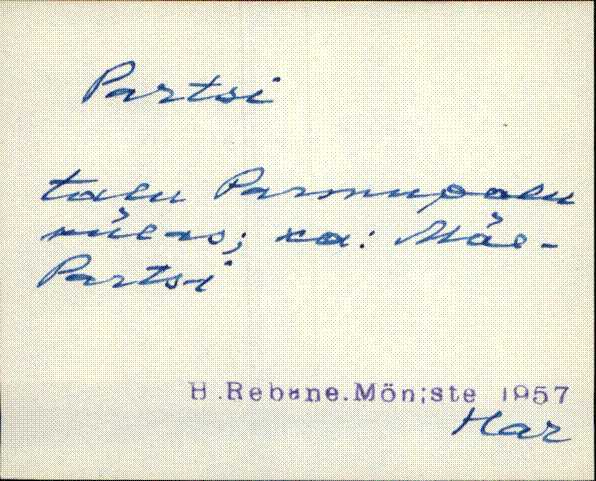 Partsi
talu Parmupalu
külas; ka: Mäe-
Partsi
H.Rebane.Mõniste 1957
Har